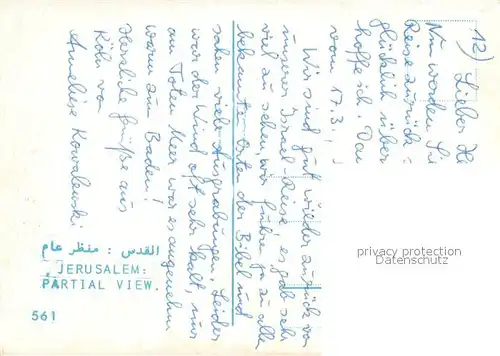 12) Lieber He
Nun werden Sie
Reise zurück =
glücklich über
hoffe ich. Dan
vom 17.3.!
Wir sind gut wieder zurück von
unserer Israel-Reise, es gab sehr
viel zu sehen, wir fuhren ja zu allen
bekannten Orten der Bibel und
sahen viele Ausgrabungen. Leider
war der Wind oft sehr kalt, nur
am Toten Meer war es angenehm
warm zum Baden!
Herzliche Grüße aus
Köln von
Anneliese Kowalewski
القدس : منظر عام
JERUSALEM:
PARTIAL VIEW.
561
privacy protection
Datenschutz